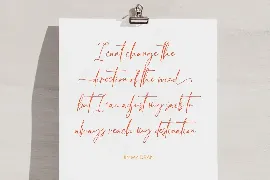 I cant change the
direction of the wind
but I can adjust my sails to
always reach my destination